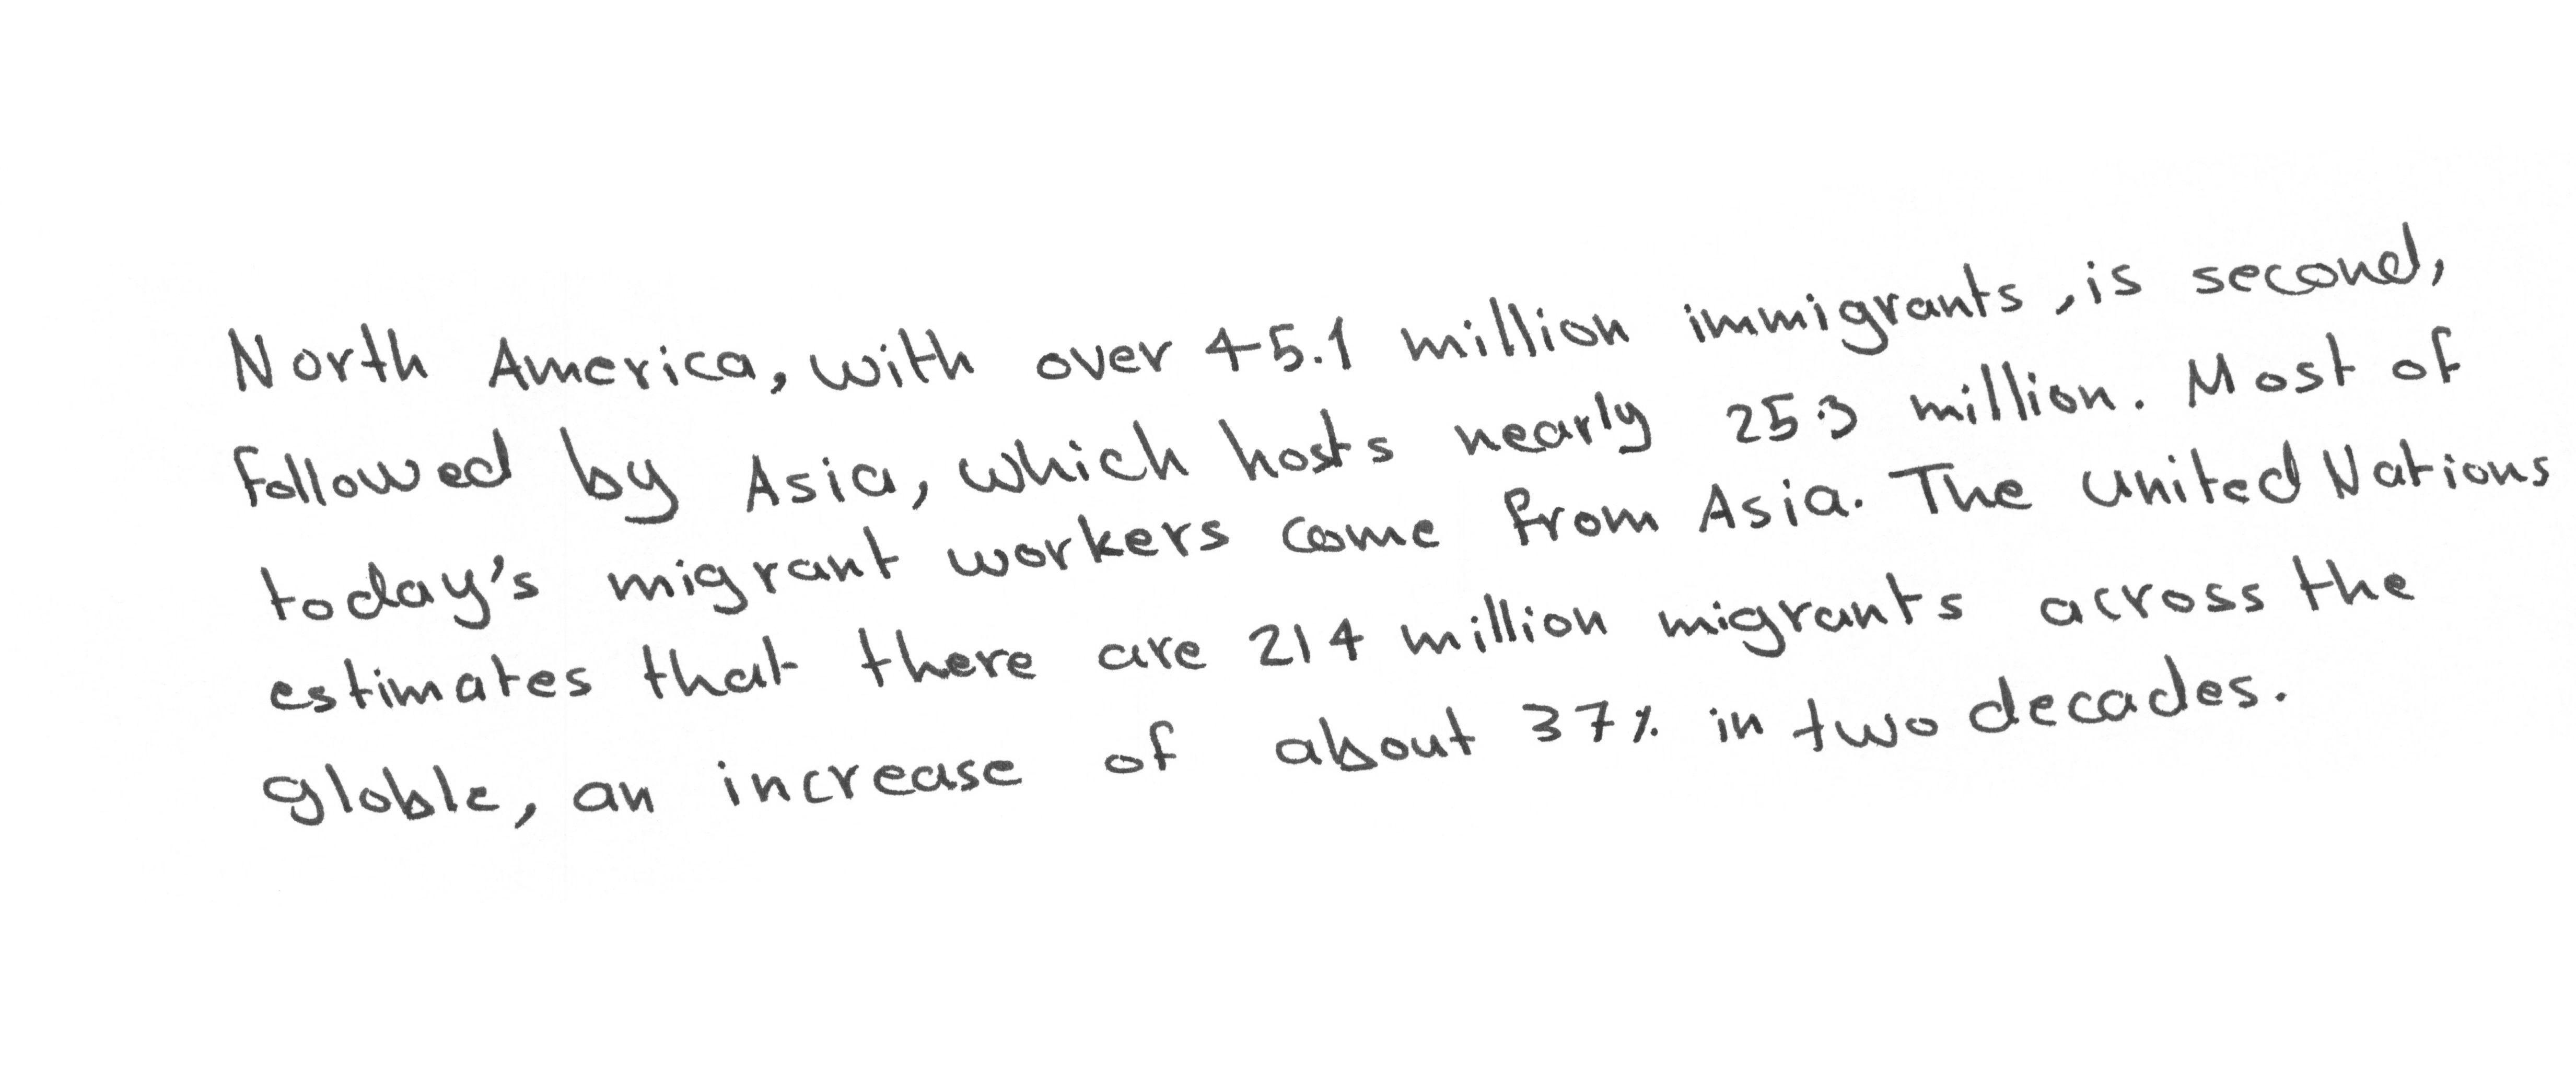 North America, with over 45.1 million immigrants, is second,
followed by Asia, which hosts nearly 25.3 million. Most of
today's migrant workers come from Asia. The united Nations
estimates that there are 214 million migrants across the
globle, an increase of about 37% in two decades.